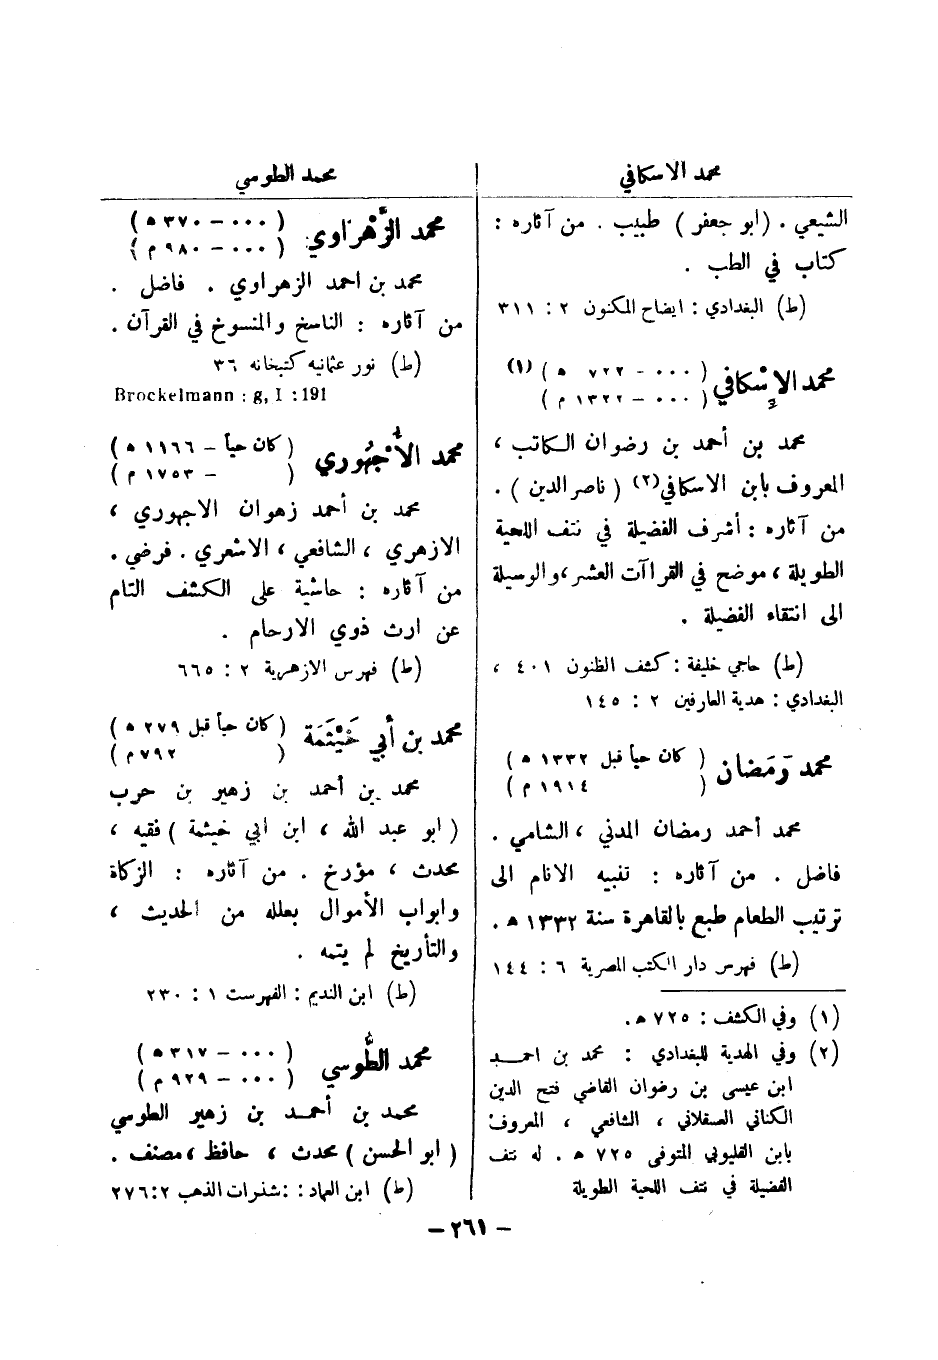 محمد الاسكافي
محمد الطوسي
الشيعي . (ابو جعفر) طبيب . من آثاره :
كتاب في الطب .
(ط) البغدادي : ايضاح المكنون ٢ : ٣١١
محمد الإِسْكافي (٠٠٠ – ٧٢٢ ه) (١)
(٠٠٠ – ١٣٢٢ م)
محمد بن أحمد بن رضوان الكاتب ،
المعروف بابن الاسكافي (٢) (ناصر الدين) .
من آثاره : أشرف الفضيلة في نتف اللحية
الطويلة ، موضح في القراآت العشر ، والوسيلة
الى انتقاء الفضيلة .
(ط) حاجي خليفة : كشف الظنون ٤٠١ ،
البغدادي : هدية العارفين ٢ : ١٤٥
محمد رَمَضان (كان حياً قبل ١٣٣٢ ه)
(١٩١٤ م)
محمد أحمد رمضان المدني ، الشامي .
فاضل . من آثاره : تنبيه الانام الى
ترتيب الطعام طبع بالقاهرة سنة ١٣٣٢ ه .
(ط) فهرس دار الكتب المصرية ٦ : ١٤٤
(١) وفي الكشف : ٧٢٥ ه .
(٢) وفي الهدية للبغدادي : محمد بن احمد
ابن عيسى بن رضوان القاضي فتح الدين
الكناني العسقلاني ، الشافعي ، المعروف
بابن القليوبي المتوفى ٧٢٥ ه . له نتف
الفضيلة في نتف اللحية الطويلة
محمد الزَّهْراوي (٠٠٠ – ٣٧٠ ه)
(٠٠٠ – ٩٨٠ م)
محمد بن احمد الزهراوي . فاضل .
من آثاره : الناسخ والمنسوخ في القرآن .
(ط) نور عثمانيه كتبخانه ٣٦
Brockelmann : g, I :191
محمد الأُجْهُوري (كان حياً – ١١٦٦ ه)
( – ١٧٥٣ م)
محمد بن أحمد زهوان الاجهوري ،
الازهري ، الشافعي ، الاشعري . فرضي .
من آثاره : حاشية على الكشف التام
عن ارث ذوي الارحام .
(ط) فهرس الازهرية ٢ : ٦٦٥
محمد بن أبي خَيْثَمَة (كان حياً قبل ٢٧٩ ه)
(٧٩٢ م)
محمد بن أحمد بن زهير بن حرب
(ابو عبد الله ، ابن ابي خيثمة) فقيه ،
محدث ، مؤرخ . من آثاره : الزكاة
وابواب الأموال بعلله من الحديث ،
والتأريخ لم يتمه .
(ط) ابن النديم : الفهرست ١ : ٢٣٠
محمد الطُّوسي (٠٠٠ – ٣١٧ ه)
(٠٠٠ – ٩٢٩ م)
محمد بن أحمد بن زهير الطوسي
(ابو الحسن) محدث ، حافظ ، مصنف .
(ط) ابن العماد : شذرات الذهب ٢:٢٧٦
– ٢٦١ –